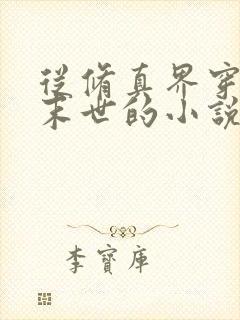 從脩真界穿
末世的小說
李寶庫